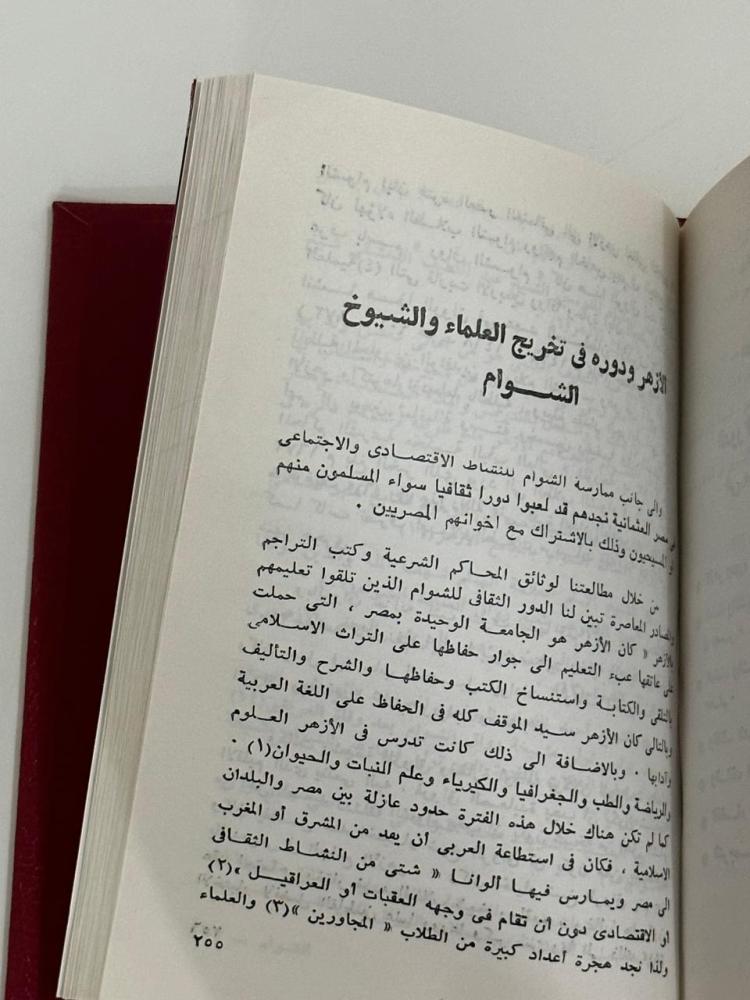 الأزهر ودوره فى تخريج العلماء والشيوخ
الشـــوام
والى جانب ممارسة الشوام للنشاط الاقتصادى والاجتماعى
فى مصر العثمانية نجدهم قد لعبوا دورا ثقافيا سواء المسلمون منهم
أو المسيحيون وذلك بالاشتراك مع اخوانهم المصريين ٠
من خلال مطالعتنا لوثائق المحاكم الشرعية وكتب التراجم
والمصادر المعاصرة تبين لنا الدور الثقافى للشوام الذين تلقوا تعليمهم
بالأزهر « كان الأزهر هو الجامعة الوحيدة بمصر ، التى حملت
على عاتقها عبء التعليم الى جوار حفاظها على التراث الاسلامى
بالتلقى والكتابة واستنساخ الكتب وحفاظها والشرح والتأليف
وبالتالى كان الأزهر سيد الموقف كله فى الحفاظ على اللغة العربية
وآدابها ٠ وبالاضافة الى ذلك كانت تدرس فى الأزهر العلوم
والرياضة والطب والجغرافيا والكيرياء وعلم النبات والحيوان(١) ٠
كما لم تكن هناك خلال هذه الفترة حدود عازلة بين مصر والبلدان
الاسلامية ، فكان فى استطاعة العربى أن يفد من المشرق أو المغرب
الى مصر ويمارس فيها ألوانا « شتى من النشاط الثقافى
أو الاقتصادى دون أن تقام فى وجهه العقبات أو العراقيل »(٢)
ولذا نجد هجرة أعداد كبيرة من الطلاب « المجاورين »(٣) والعلماء
٢٥٥